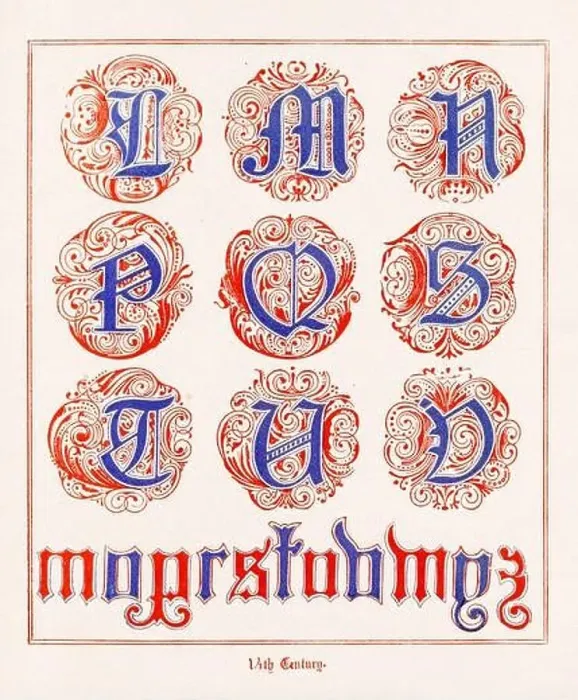 L M N
P Q S
T U V
moprstuvwyz
14th Century.